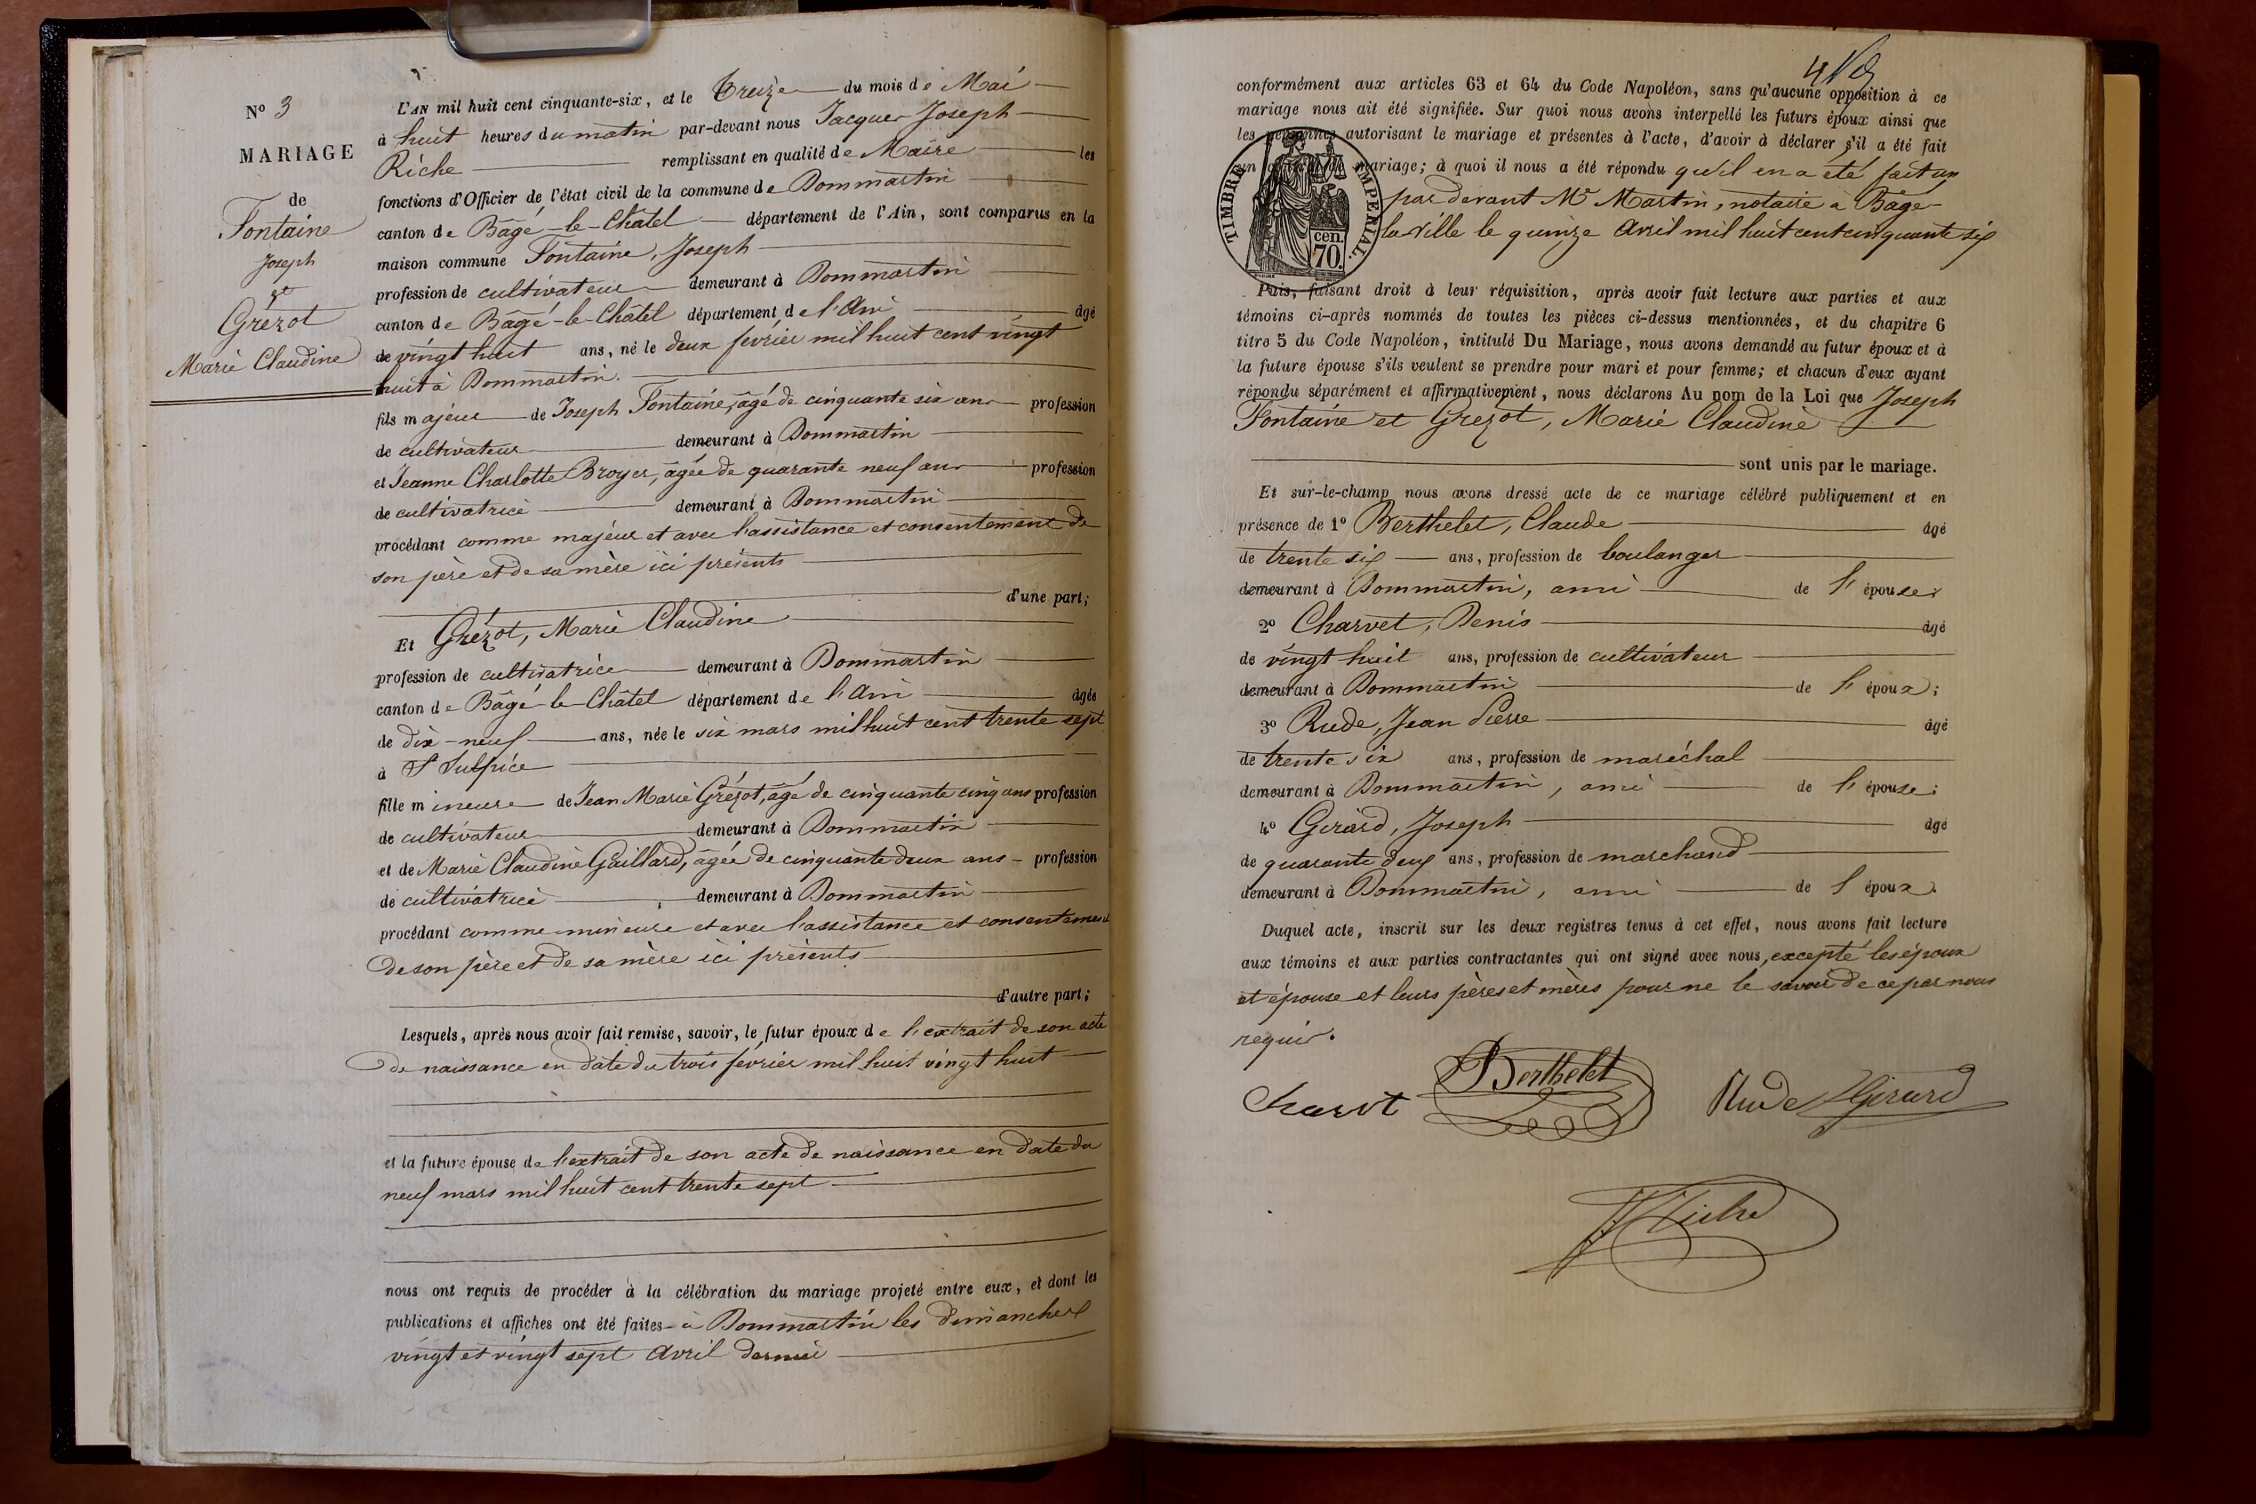 N° 3
MARIAGE
de
Fontaine
Joseph
et
Grézot
Marie Claudine
L'AN mil huit cent cinquante-six, et le Treize du mois de Mai
à huit heures du matin par-devant nous Jacques Joseph
Riche remplissant en qualité de Maire les
fonctions d'Officier de l'état civil de la commune de Dommartin
canton de Bâgé-le-Châtel département de l'Ain, sont comparus en la
maison commune Fontaine, Joseph
profession de cultivateur demeurant à Dommartin
canton de Bâgé-le-Châtel département de l'Ain âgé
de vingt huit ans, né le deux février mil huit cent vingt
huit à Dommartin.
fils majeur de Joseph Fontaine, âgé de cinquante six ans profession
de cultivateur demeurant à Dommartin
et Jeanne Charlotte Broyer, âgée de quarante neuf ans profession
de cultivatrice demeurant à Dommartin
procédant comme majeur et avec l'assistance et consentement de
son père et de sa mère ici présents
d'une part;
Et Grézot, Marie Claudine
profession de cultivatrice demeurant à Dommartin
canton de Bâgé-le-Châtel département de l'Ain âgée
de dix-neuf ans, née le six mars mil huit cent trente sept
à St Sulpice
fille mineure de Jean Marie Grézot, âgé de cinquante cinq ans profession
de cultivateur demeurant à Dommartin
et de Marie Claudine Gaillard, âgée de cinquante deux ans - profession
de cultivatrice demeurant à Dommartin
procédant comme mineure et avec l'assistance et consentement
de son père et de sa mère ici présents
d'autre part;
Lesquels, après nous avoir fait remise, savoir, le futur époux de l'extrait de son acte
de naissance en date du trois février mil huit vingt huit
et la future épouse de l'extrait de son acte de naissance en date du
neuf mars mil huit cent trente sept
nous ont requis de procéder à la célébration du mariage projeté entre eux, et dont les
publications et affiches ont été faites à Dommartin les dimanches
vingt et vingt sept avril dernier
conformément aux articles 63 et 64 du Code Napoléon, sans qu'aucune opposition à ce
mariage nous ait été signifiée. Sur quoi nous avons interpellé les futurs époux ainsi que
les personnes autorisant le mariage et présentes à l'acte, d'avoir à déclarer s'il a été fait
un contrat de mariage; à quoi il nous a été répondu qu'il en a été fait un
par devant Me Martin, notaire à Bâgé-
la-Ville le quinze avril mil huit cent cinquante six
TIMBRE IMPÉRIAL.
70 cen.
Puis, faisant droit à leur réquisition, après avoir fait lecture aux parties et aux
témoins ci-après nommés de toutes les pièces ci-dessus mentionnées, et du chapitre 6
titre 5 du Code Napoléon, intitulé Du Mariage, nous avons demandé au futur époux et à
la future épouse s'ils veulent se prendre pour mari et pour femme; et chacun d'eux ayant
répondu séparément et affirmativement, nous déclarons Au nom de la Loi que Joseph
Fontaine et Grézot, Marie Claudine
sont unis par le mariage.
Et sur-le-champ nous avons dressé acte de ce mariage célébré publiquement et en
présence de 1° Berthelet, Claude âgé
de trente six ans, profession de boulanger
demeurant à Dommartin, ami de l'épouse;
2° Charvet, Denis âgé
de vingt huit ans, profession de cultivateur
demeurant à Dommartin de l'époux;
3° Rude, Jean Pierre âgé
de trente six ans, profession de maréchal
demeurant à Dommartin, ami de l'épouse;
4° Girard, Joseph âgé
de quarante deux ans, profession de marchand
demeurant à Dommartin, ami de l'époux.
Duquel acte, inscrit sur les deux registres tenus à cet effet, nous avons fait lecture
aux témoins et aux parties contractantes qui ont signé avec nous, excepté les époux
et épouse et leurs pères et mères pour ne le savoir de ce par nous
requis.
Charvet Berthelet Rude Girard
J Riche